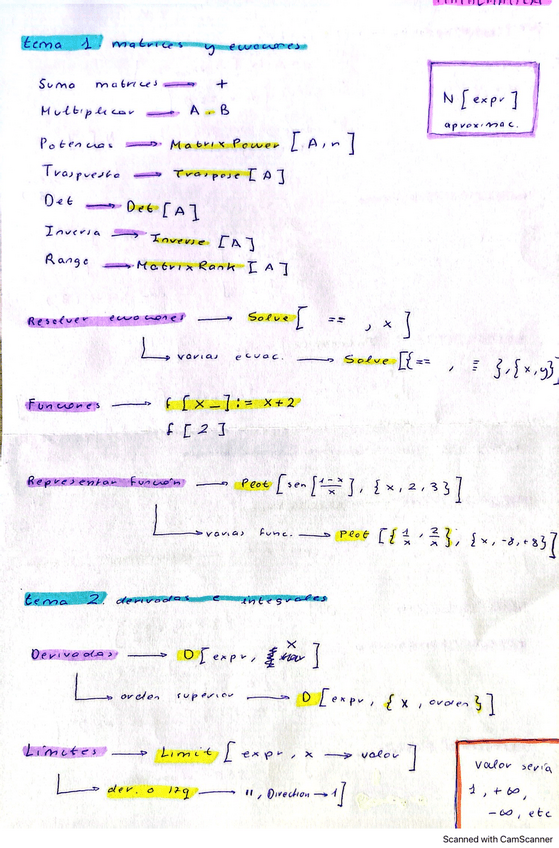 MATHEMATICA
tema 1 matrices y ecuaciones
Suma matrices → +
Multiplicar → A . B
N [expr]
aproximac.
Potencias → MatrixPower [A, n]
Traspuesta → Traspose [A]
Det → Det [A]
Inversa → Inverse [A]
Rango → MatrixRank [A]
Resolver ecuaciones → Solve [ == , x ]
varias ecuac. → Solve [{== , = }, {x,y}
Funciones → f [x_] := x+2
f [2]
Representar función → Plot [sen [1-x/x], {x, 2, 3}]
varias func. → Plot [{1/x, 2/x}, {x, -8, +8}]
tema 2. derivadas e integrales
Derivadas → D [expr, x]
orden superior → D [expr, {x, orden}]
Límites → Limit [expr, x → valor]
der. o izq → ", Direction → 1]
valor sería
1, +∞,
-∞, etc
Scanned with CamScanner